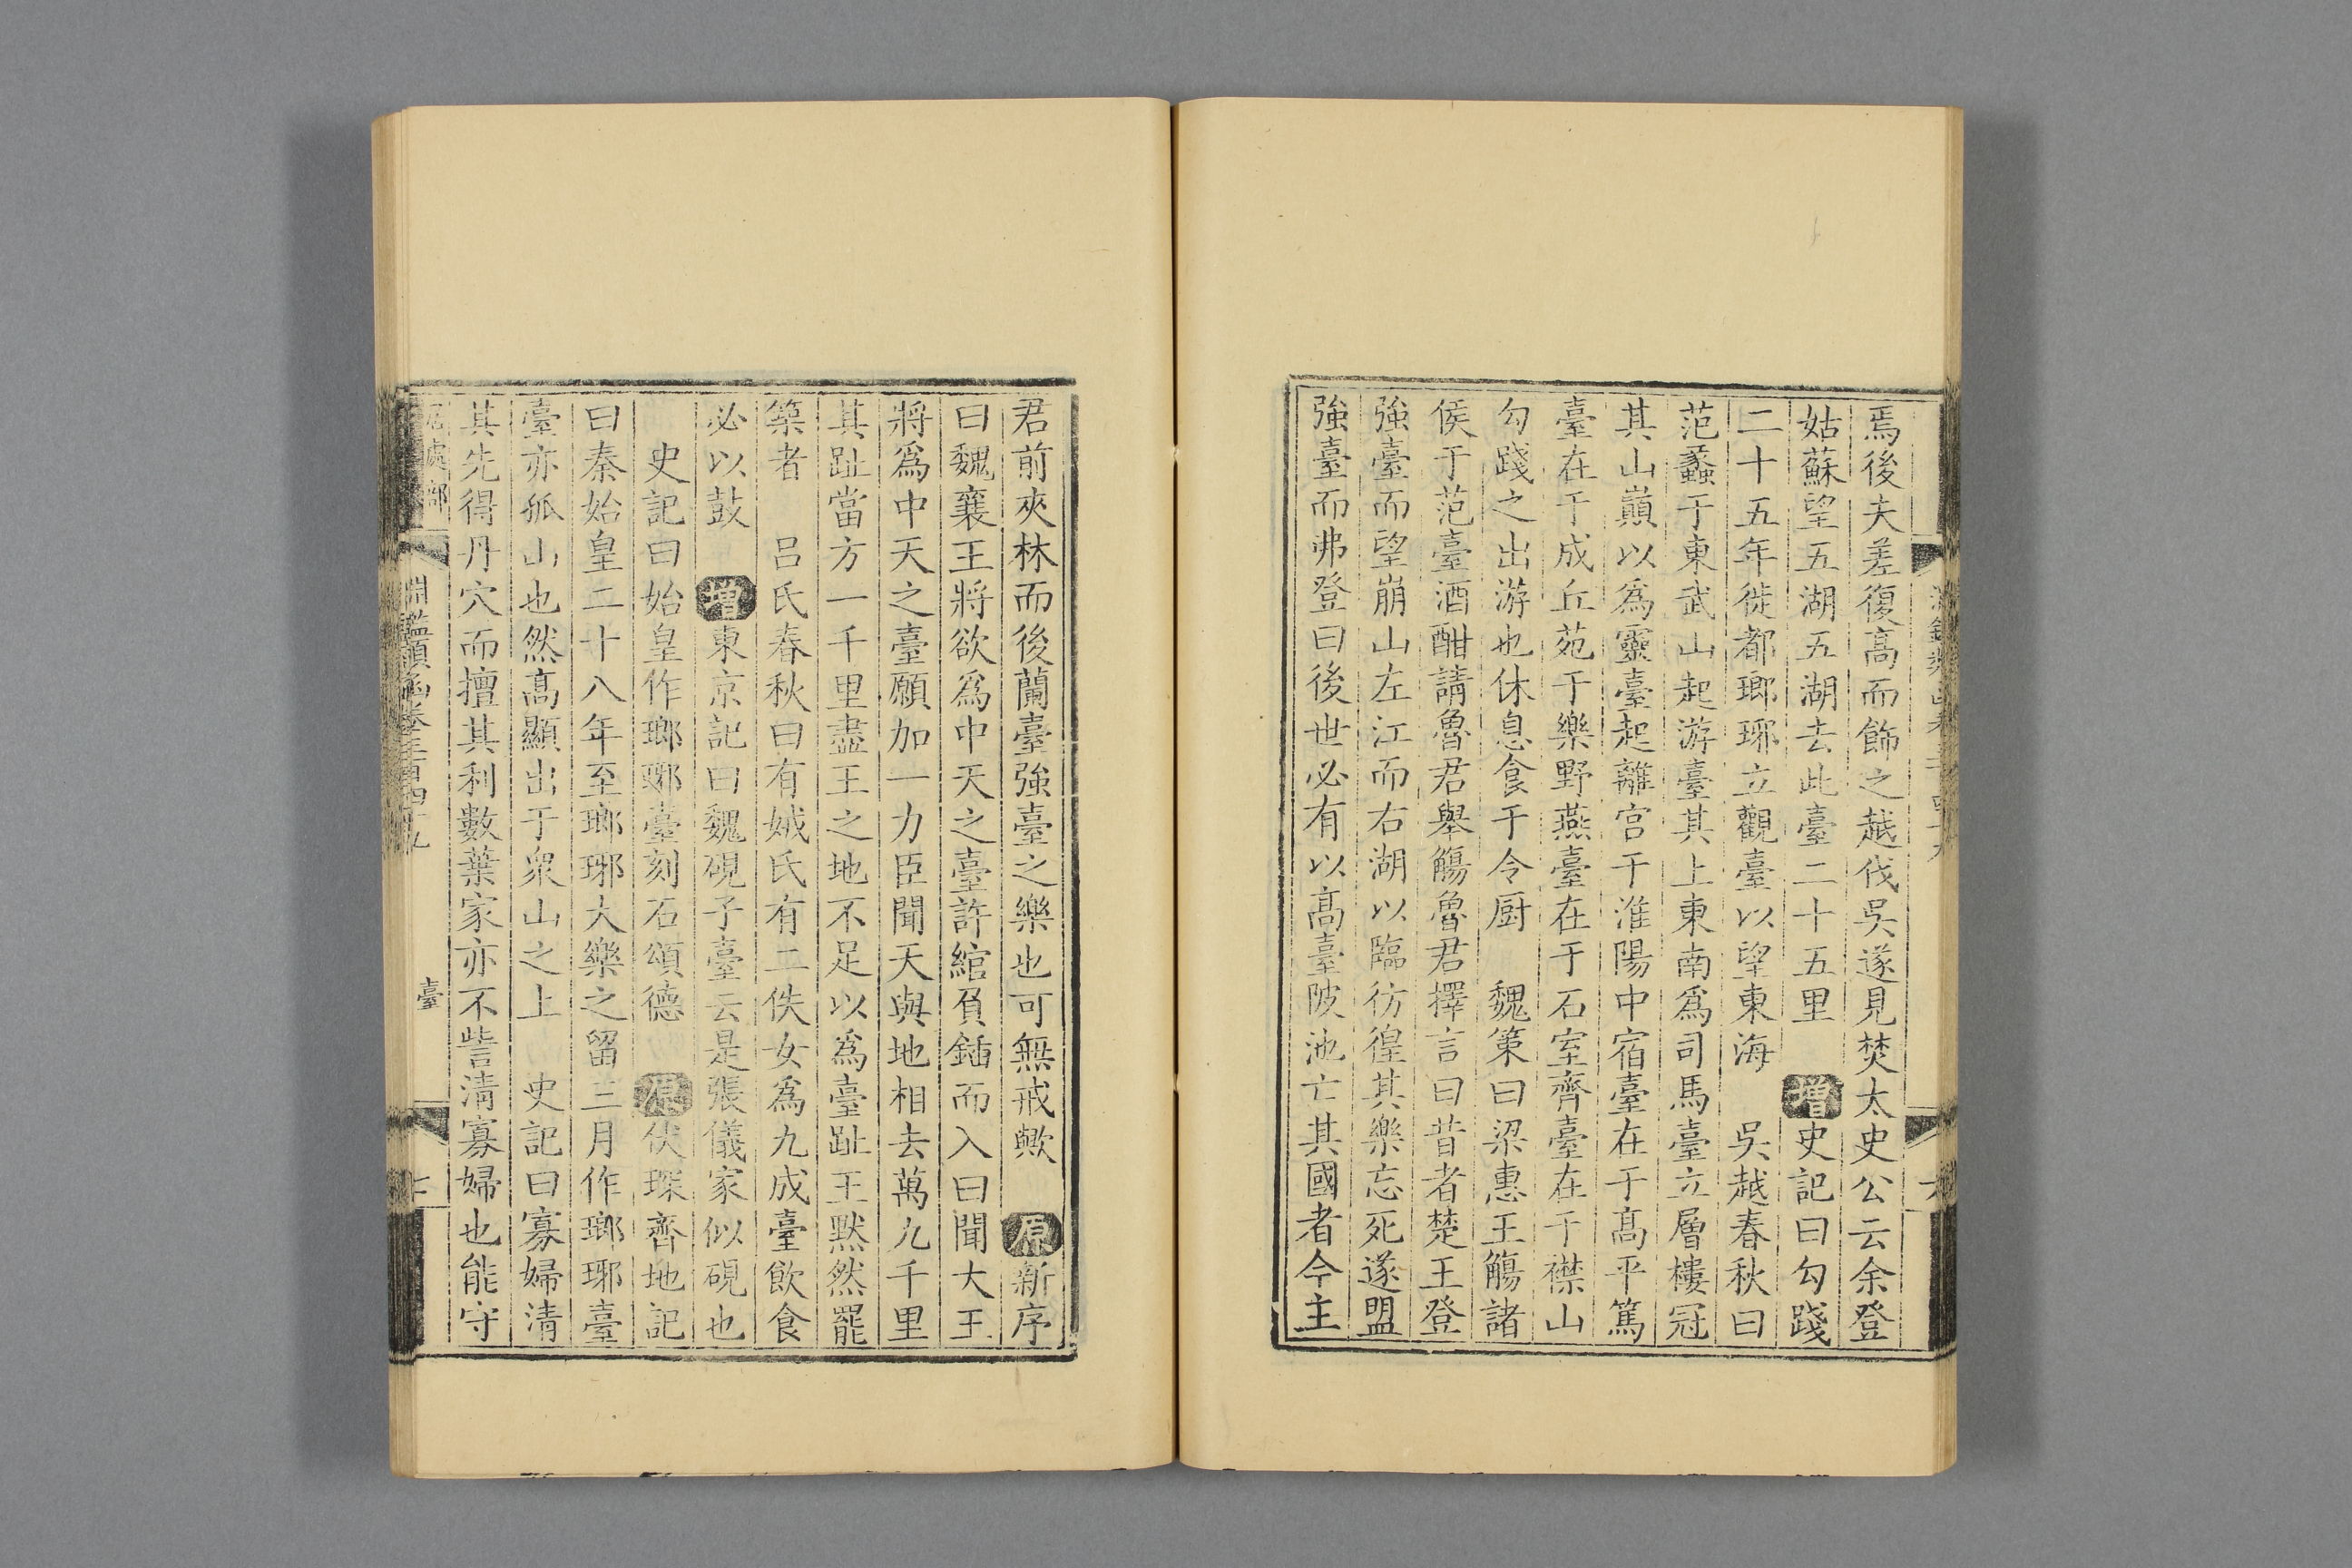 焉後夫差復高而飾之越伐吳遂見焚太史公云余登
姑蘇望五湖五湖去此臺二十五里 增史記曰勾踐
二十五年徙都瑯琊立觀臺以望東海 吳越春秋曰
范蠡于東武山起游臺其上東南爲司馬臺立層樓冠
其山巔以爲靈臺起離宮于淮陽中宿臺在于高平篤
臺在于成丘苑于樂野燕臺在于石室齊臺在于襟山
勾踐之出游也休息食于令厨 魏策曰梁惠王觴諸
侯于范臺酒酣請魯君舉觴魯君擇言曰昔者楚王登
強臺而望崩山左江而右湖以臨彷徨其樂忘死遂盟
強臺而弗登曰後世必有以高臺陂池亡其國者今主
君前夾林而後蘭臺強臺之樂也可無戒歟 原新序
曰魏襄王將欲爲中天之臺許綰負鍤而入曰聞大王
將爲中天之臺願加一力臣聞天與地相去萬九千里
其趾當方一千里盡王之地不足以爲臺趾王默然罷
築者 呂氏春秋曰有娀氏有二佚女爲九成臺飲食
必以鼓 增東京記曰魏硯子臺云是張儀冢似硯也
史記曰始皇作瑯琊臺刻石頌德 原伏琛齊地記
曰秦始皇二十八年至瑯琊大樂之留三月作瑯琊臺
臺亦孤山也然高顯出于衆山之上 史記曰寡婦清
其先得丹穴而擅其利數葉家亦不訾清寡婦也能守
居處部 淵鑑類函卷三百四十九 臺 七